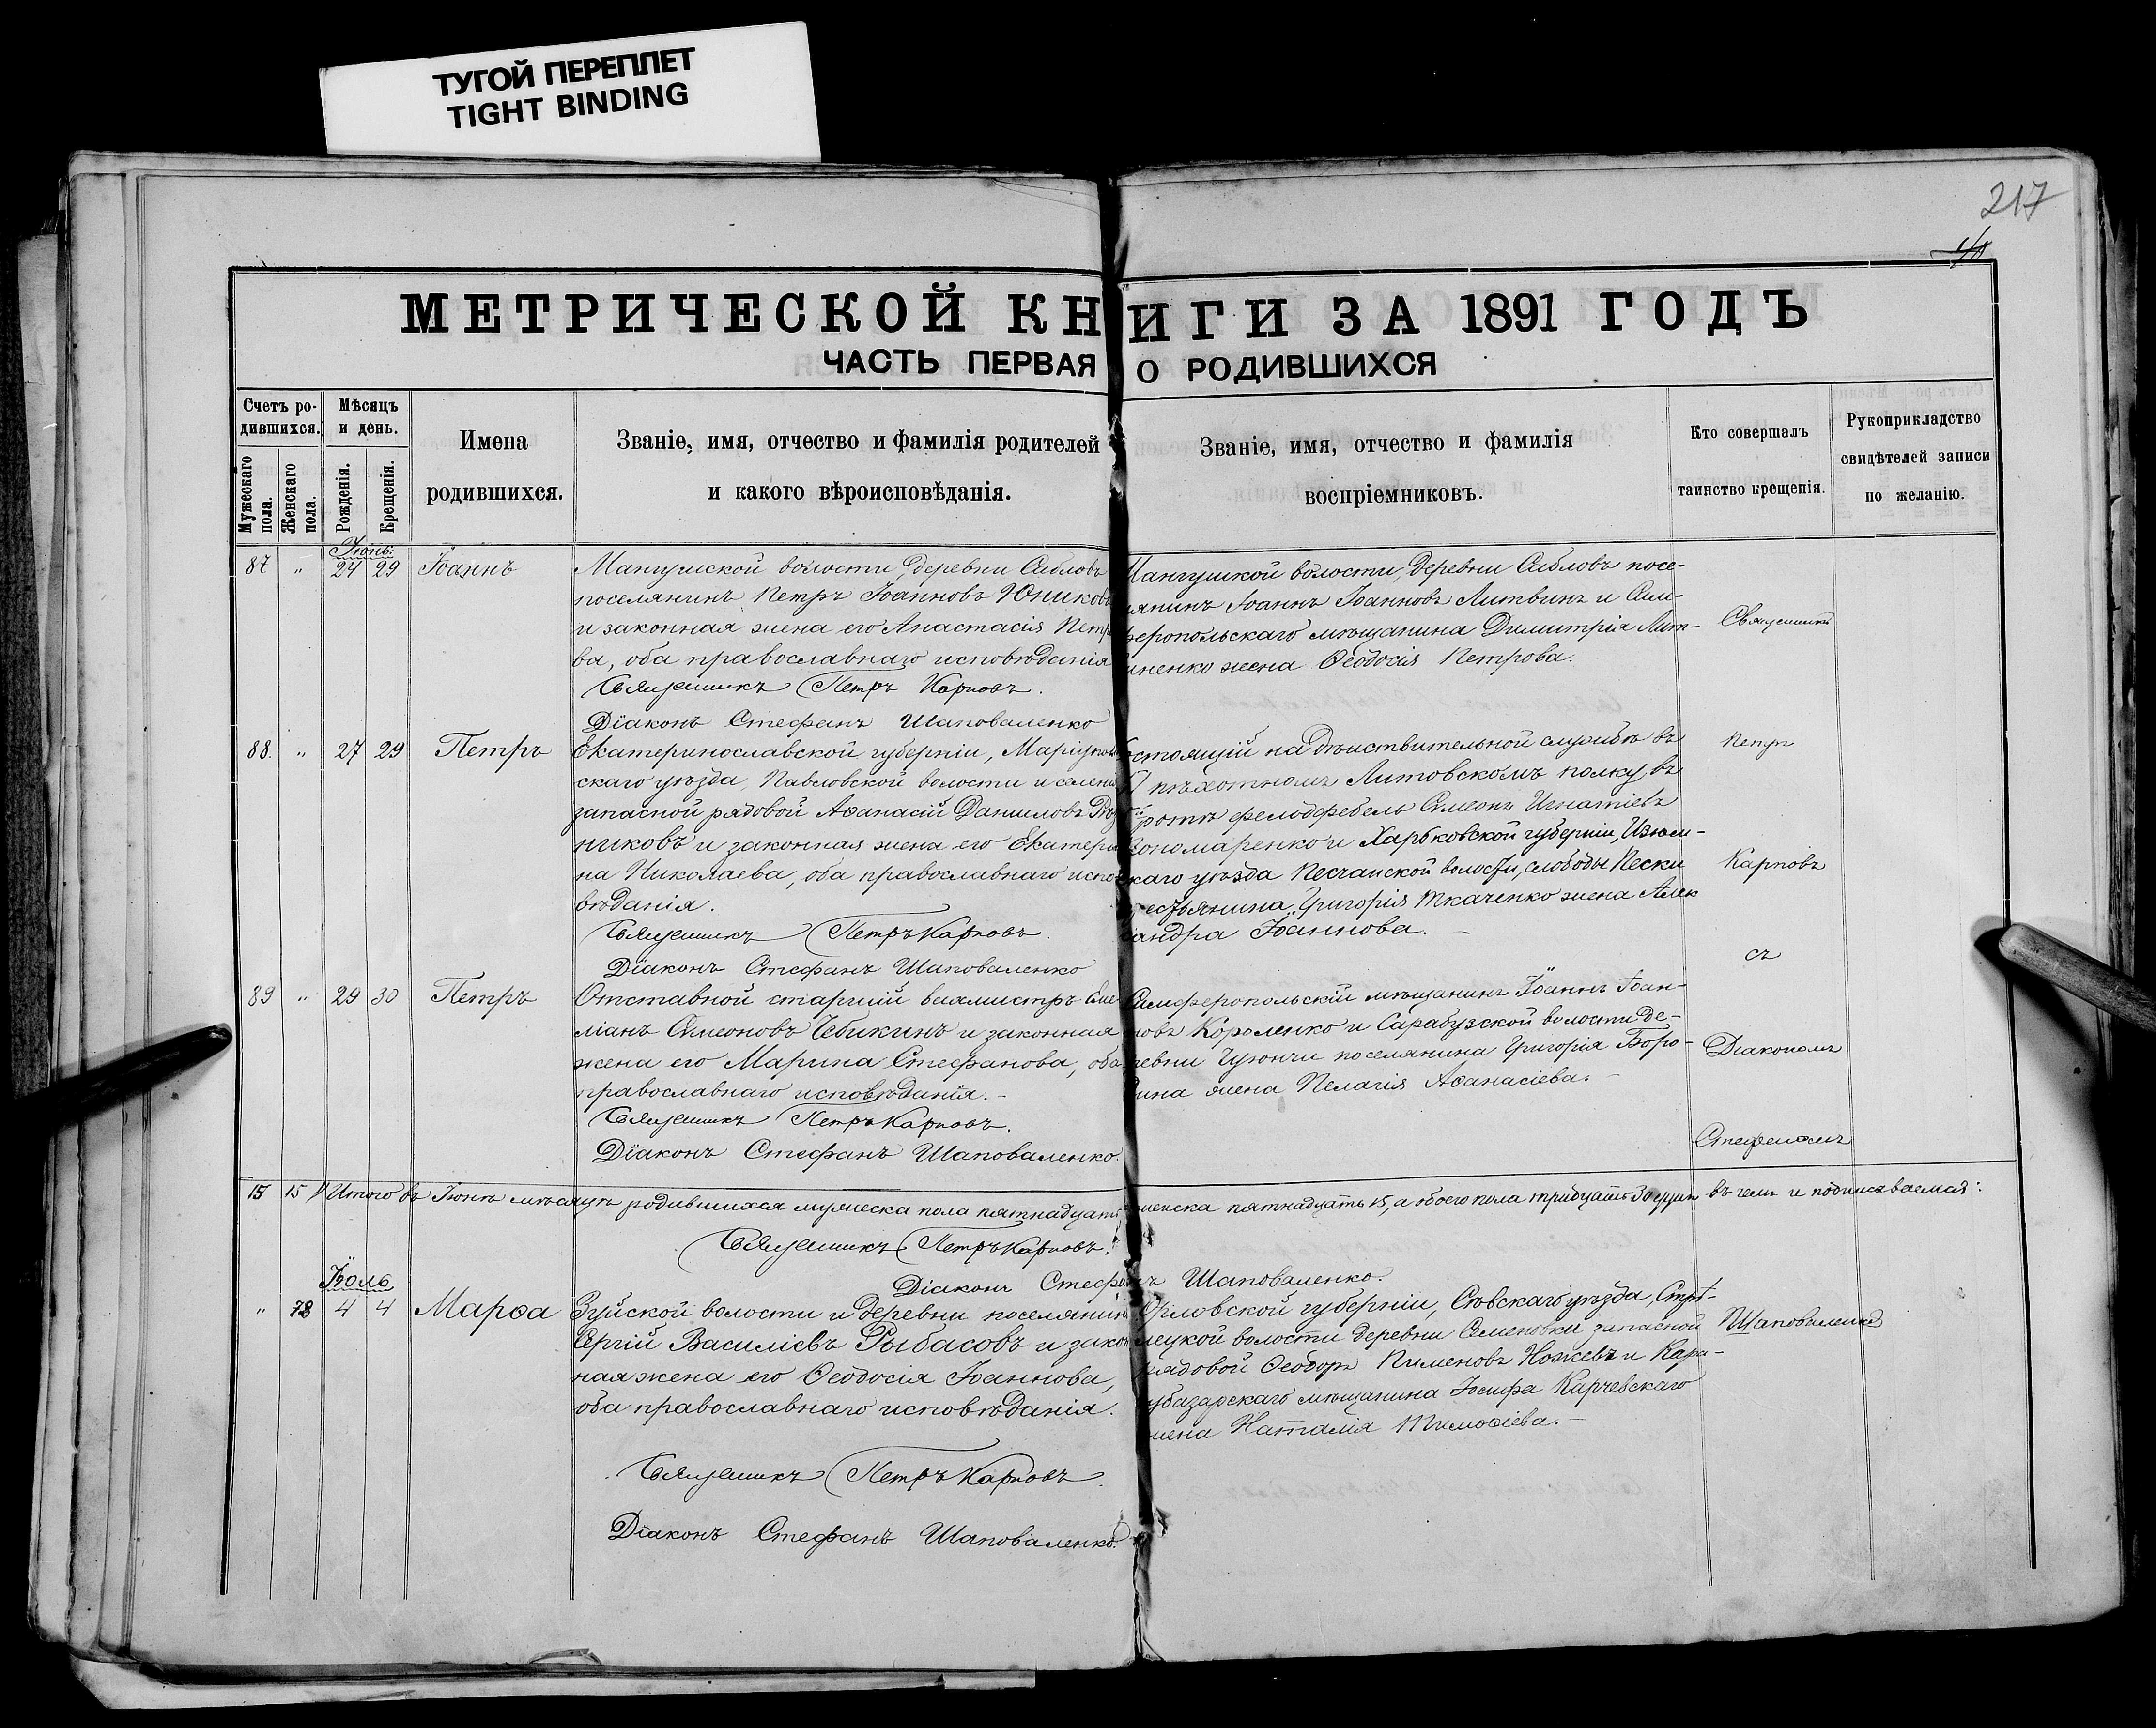 ТУГОЙ ПЕРЕПЛЕТ
TIGHT BINDING
217
МЕТРИЧЕСКОЙ КНИГИ ЗА 1891 ГОДЪ
ЧАСТЬ ПЕРВАЯ О РОДИВШИХСЯ
Счетъ ро-
дившихся.
Мужескаго пола.
Женскаго пола.
Мѣсяцъ
и день.
Рожденія.
Крещенія.
Имена
родившихся.
Званіе, имя, отчество и фамилія родителей
и какого вѣроисповѣданія.
Званіе, имя, отчество и фамилія
воспріемниковъ.
Кто совершалъ
таинство крещенія.
Рукоприкладство
свидѣтелей записи
по желанію.
Іюнь:
87 " 24 29 Іоаннъ
Мангушской волости, деревни Сабловъ
поселянинъ Петръ Іоанновъ Юниковъ
и законная жена его Анастасія Петр
ва, оба православнаго исповѣданія
Священникъ Петръ Карповъ.
Діаконъ Стефанъ Шаповаленко
Мангушкой волости, деревни Сабловъ посе-
лянинъ Іоаннъ Іоанновъ Литвинъ и Сим-
феропольскаго мѣщанина Димитрія Лит-
виненко жена Ѳеодосія Петрова.
88. " 27 29 Петръ
Екатеринославской губерніи, Маріуполь
скаго уѣзда, Павловской волости и селенія
запасной рядовой Аѳанасій Даниловъ
никовъ и законная жена его Екатери
на Николаева, оба православнаго испо
вѣданія.
Священникъ Петръ Карповъ.
Діаконъ Стефанъ Шаповаленко
состоящій на дѣйствительной службѣ въ
пѣхотномъ Литовскомъ полку въ
ротѣ фельдфебель Симеонъ Игнатіевъ
Пономаренко и Харьковской губерніи, Изюм-
скаго уѣзда Песчанской волости, слободы Пески
крестьянина Григорія Ткаченко жена Алек
сандра Іоаннова.
89 " 29 30 Петръ
Отставной старшій вахмистръ Еме
ліанъ Симеоновъ Чебикинъ и законная
жена его Марина Стефанова, оба
православнаго исповѣданія.
Священникъ Петръ Карповъ.
Діаконъ Стефанъ Шаповаленко.
Симферопольскій мѣщанинъ Іоаннъ Іоан-
новъ Короленко и Сарабузской волости де-
ревни Чуюнчи поселянина Григорія Боро-
дина жена Пелагія Аѳанасіева.
15 15 Итого въ Іюнѣ мѣсяцѣ родившихся мужеска пола пятнадцать женска пятнадцать 15, а обоего пола тридцать 30 душъ въ чемъ и подписываемся:
Священникъ Петръ Карповъ.
Діаконъ Стефанъ Шаповаленко.
Іюль
" 78 4 4 Марѳа
Зуйской волости и деревни поселянинъ
Сергій Василіевъ Рыбасовъ и закон
ная жена его Ѳеодосія Іоаннова,
оба православнаго исповѣданія.
Священникъ Петръ Карповъ.
Діаконъ Стефанъ Шаповаленко.
Орловской губерніи, Сѣвскаго уѣзда, Стрѣ-
лецкой волости деревни Семеновки запасной
рядовой Ѳеодоръ Пименовъ Ножевъ и Кара-
субазарскаго мѣщанина Іосифа Карчевскаго
жена Наталія Тимоѳіева.
Священникъ
Петръ
Карповъ
съ
Діакономъ
Стефаномъ
Шаповаленко